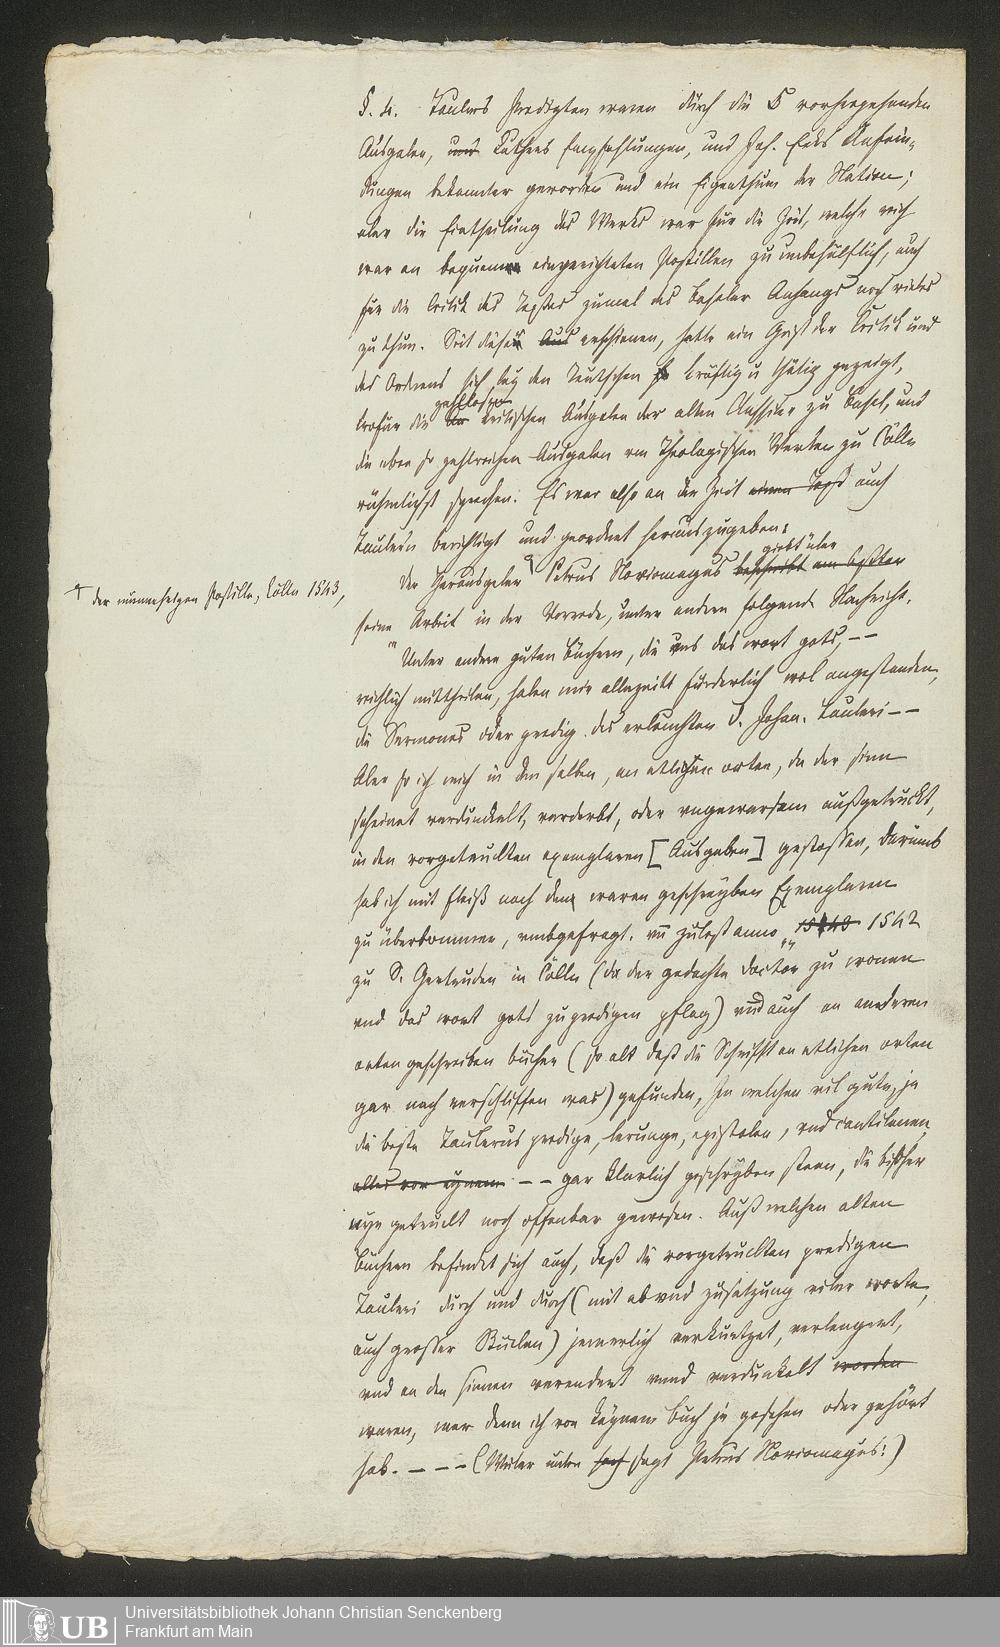 §. 4. Taulers Predigten waren durch die 5 vorhergehenden
Ausgaben, und Luthers Empfehlungen, und Joh. Ecks Anfein-
dungen bekannter geworden und ein Eigenthum der Nation;
aber die Eintheilung des Werks war für die Zeit, welche reich
war an bequem eingerichteten Postillen zu unbehülflich, auch
für die Critik des Textes zumal des Baseler Anhangs noch vieles
zu thun. Seit diese Aus erschienen, hatte ein Geist der Critik und
des Ordnens sich bey den Teutschen kräftig u thätig gezeigt,
wofür die zahllosen critischen Ausgaben der alten Classiker zu Basel, und
die eben so zahlreichen Ausgaben von Theologischen Werken zu Cölln
rühmlichst sprechen. Es war also an der Zeit einen Text auch
Taulern berichtigt und geordnet herauszugeben.
Der Herausgeber Petrus Noviomagus beschreibt am besten giebt über
* der nunmehrigen Postille, Cölln 1543,
seine Arbeit in der Vorrede, unter andern folgende Nachricht.
"Unter andere guten büchern, die uns das wort gots, --
reichlich mittheilen, haben mir allezeitt fürderlich wol angestanden,
die Sermones oder predig des erleuchten D. Johan. Tauleri --
Aber so ich mich in den selben, an etlichen orten, da der sinn
scheinet verdunckelt, verderbt, oder ungewarsam außgetruckt,
in den vorgetruckten exemplaren [Ausgaben] gestossen, darumb
hab ich mit fleiß nach den waren geschryben Exemplaren
zu überkommen, umbgefragt. un zulest anno 1548 1542
zu S. Gertruden in Cölln (da der gedachte doctor zu wonen
und das wort gots zu predigen pflag) und auch an anderen
orten geschreiben bücher (so alt daß die Schrifft an etlichen orten
gar nach verschliffen was) gefunden, In welchen vil gute, ja
die beste Taulerus predige, lerunge, epistolen, und cantilenen
alles von eynem -- gar klarlich geschryben steen, die bißher
nye getruckt noch offenbar gewesen. Auß welchen alten
büchern befindet sich auch, daß die vorgetruckten predigen
Tauleri durch und durch (mit ab und züsatzung viler worte,
auch grosser Stucken) jemerlich verkurtzet, verlengert,
und an den sinnen verendert unnd verdunkelt worden
waren, mer denn ich von keynem buch je gesehen oder gehört
hab. ---- (Weiter unten sagt Petrus Noviomagus:)
UB Universitätsbibliothek Johann Christian Senckenberg
Frankfurt am Main